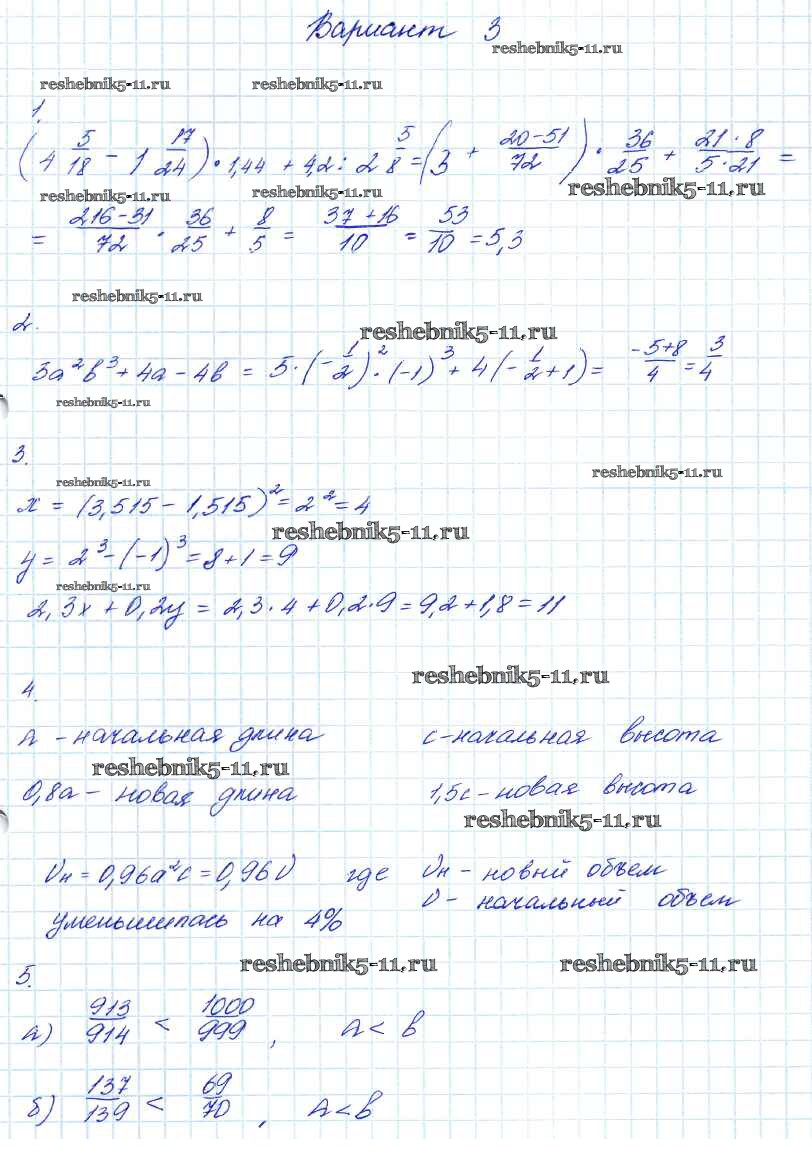 Вариант 3
reshebnik5-11.ru
reshebnik5-11.ru reshebnik5-11.ru
1.
(4 5/18 - 1 17/24) · 1,44 + 4,2 : 2 5/8 = (3 + (20-51)/72) · 36/25 + (21·8)/(5·21) =
reshebnik5-11.ru reshebnik5-11.ru reshebnik5-11.ru
= (216-31)/72 · 36/25 + 8/5 = (37+16)/10 = 53/10 = 5,3
reshebnik5-11.ru
2.
reshebnik5-11.ru
5a²b³ + 4a - 4b = 5·(-1/2)²·(-1)³ + 4(-1/2+1) = (-5+8)/4 = 3/4
reshebnik5-11.ru
3.
reshebnik5-11.ru
reshebnik5-11.ru
x = (3,515 - 1,515)² = 2² = 4
reshebnik5-11.ru
y = 2³ - (-1)³ = 8 + 1 = 9
reshebnik5-11.ru
2,3x + 0,2y = 2,3·4 + 0,2·9 = 9,2 + 1,8 = 11
reshebnik5-11.ru
4.
a - начальная длина c - начальная высота
reshebnik5-11.ru
0,8a - новая длина 1,5c - новая высота
reshebnik5-11.ru
Vн = 0,96a²c = 0,96V где Vн - новый объем
V - начальный объем
уменьшилась на 4%
reshebnik5-11.ru reshebnik5-11.ru
5.
а) 913/914 < 1000/999, a < b
б) 137/139 < 69/70, a < b